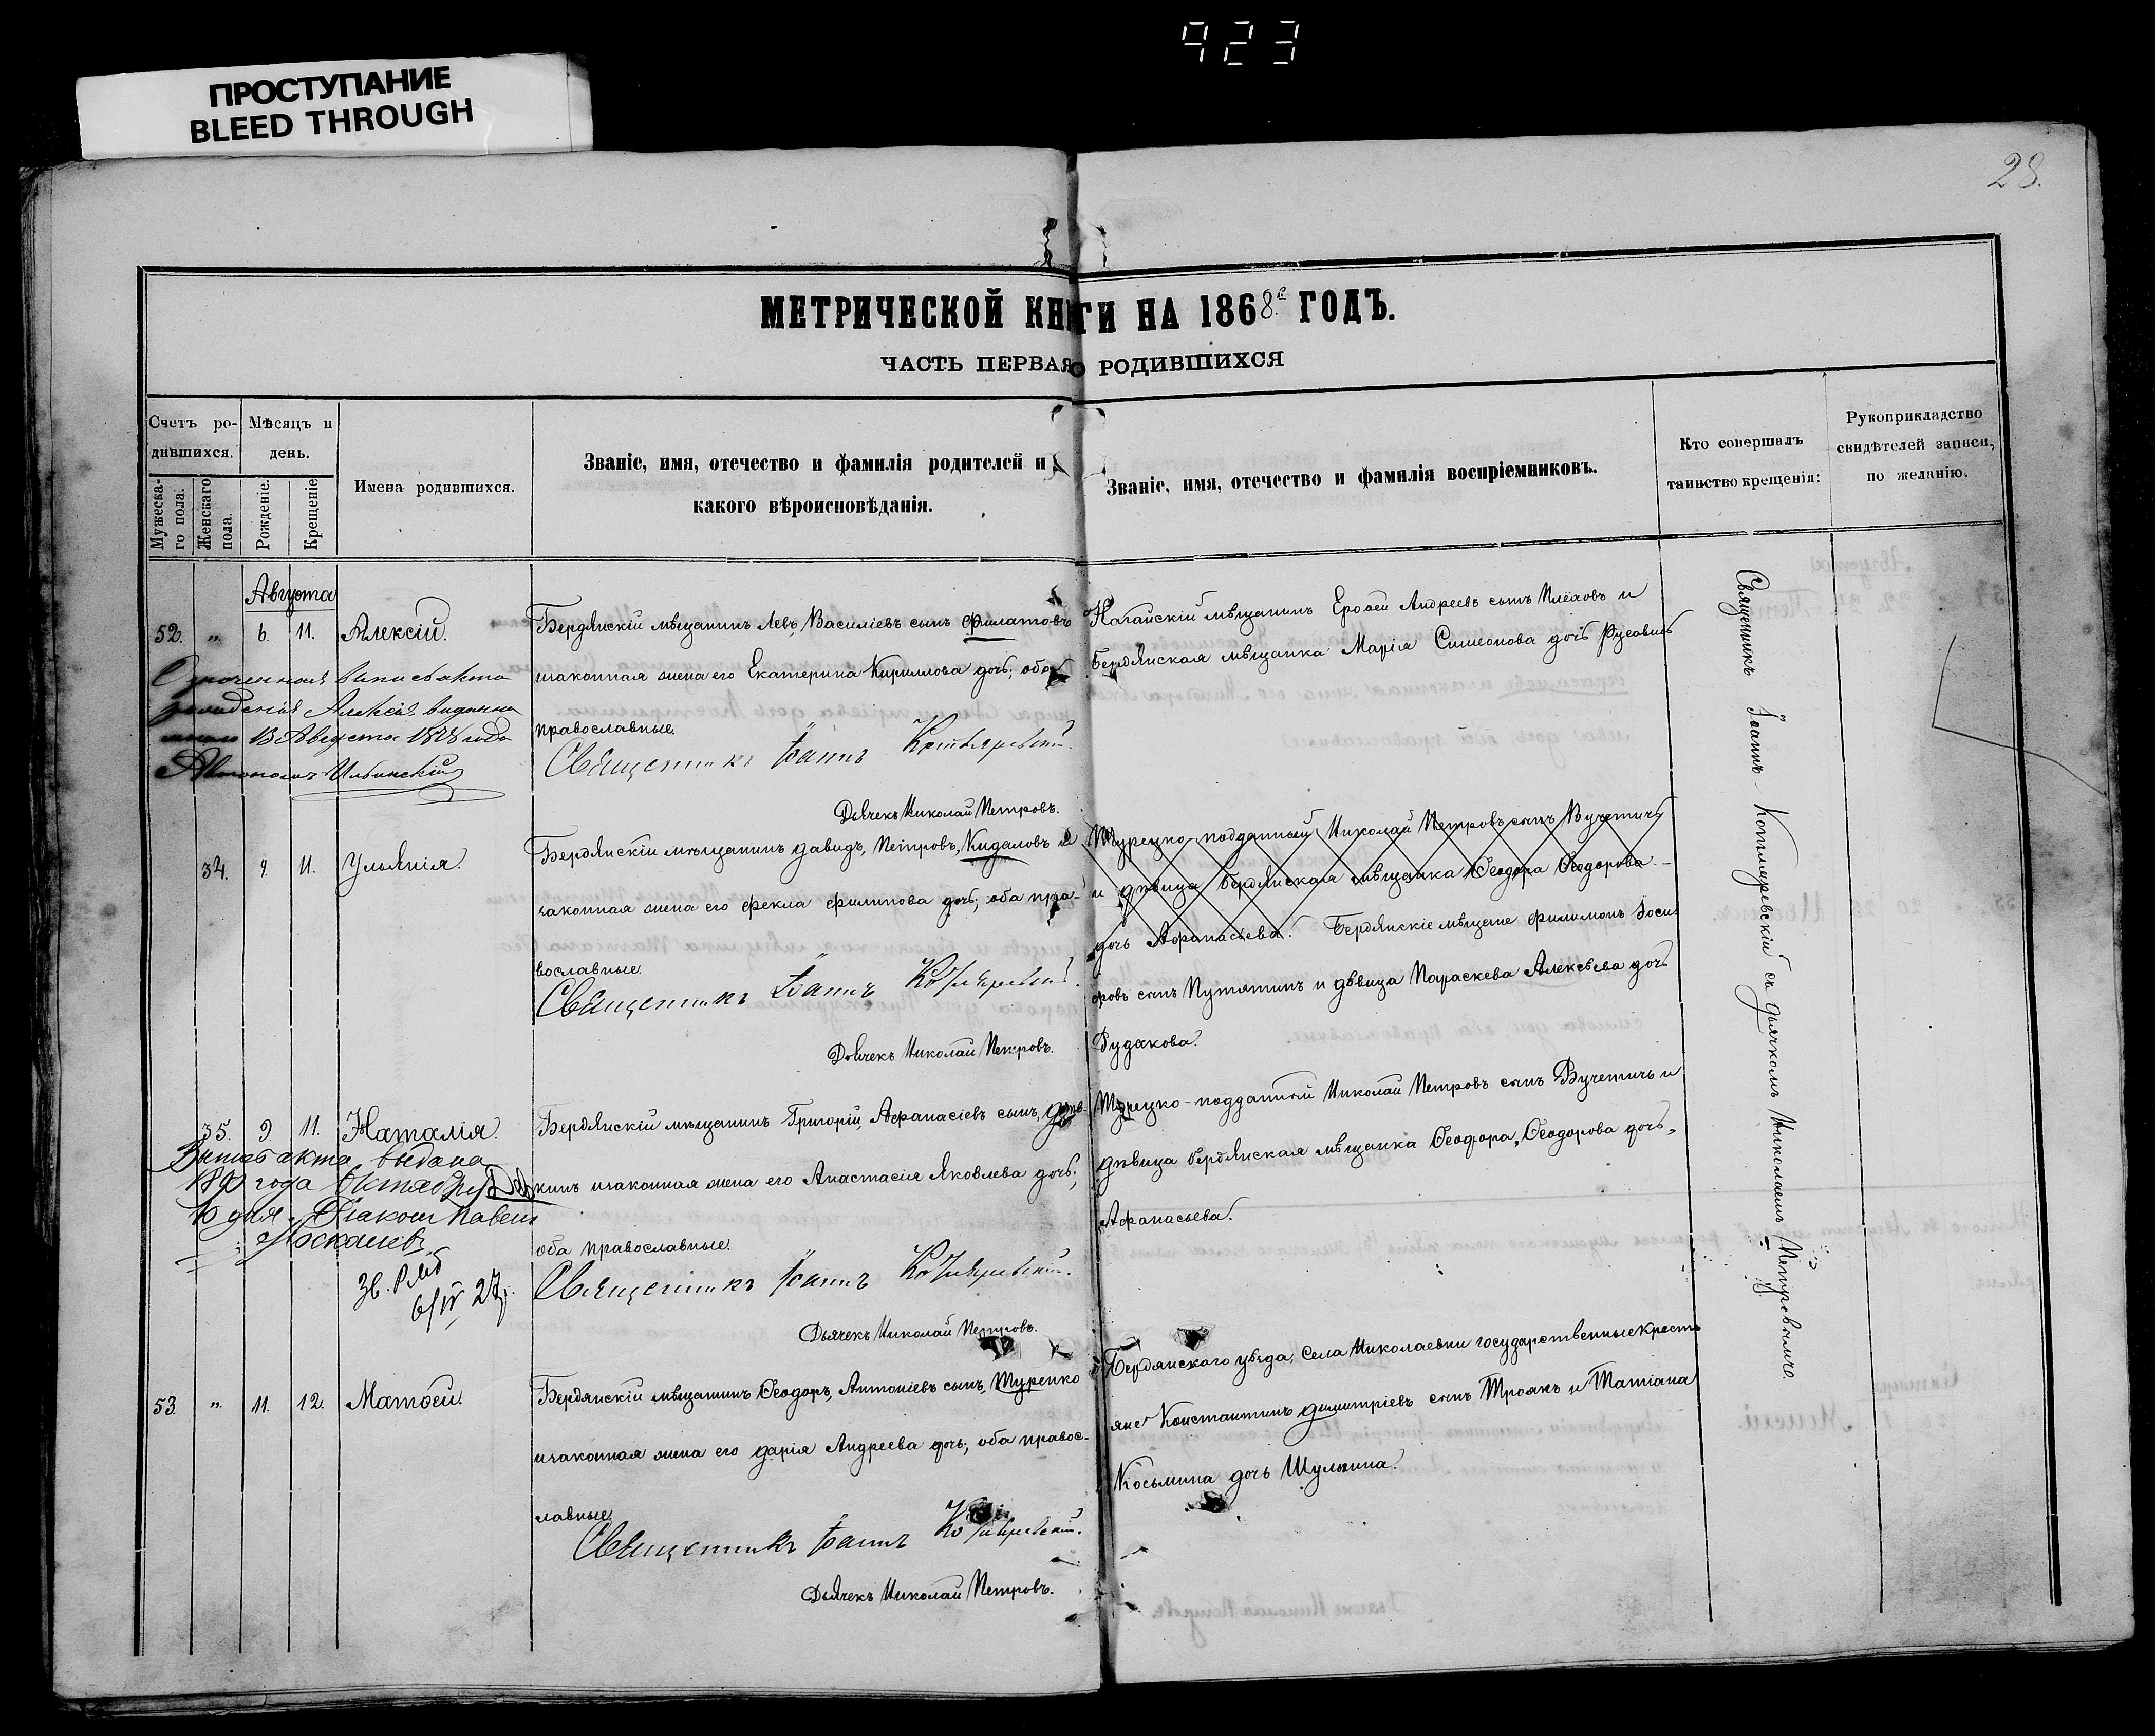 423
ПРОСТУПАНИЕ
BLEED THROUGH
28.
МЕТРИЧЕСКОЙ КНИГИ НА 1868й ГОДЪ.
ЧАСТЬ ПЕРВАЯ О РОДИВШИХСЯ
Счетъ ро-
дившихся.
Мужеска-
го пола.
Женскаго
пола.
Мѣсяцъ и
день.
Рожденіе.
Крещеніе
Имена родившихся.
Званіе, имя, отечество и фамилія родителей и
какого вѣроисповѣданія.
Званіе, имя, отечество и фамилія воспріемниковъ.
Кто совершалъ
таинство крещенія:
Рукоприкладство
свидѣтелей записи,
по желанію.
Августа
52. „ 6. 11. Алексій.
Бердянскій мѣщанинъ Левъ, Василіевъ сынъ Филатовъ
изаконная жена его Екатерина Кириллова дочь; оба
православные.
Священникъ Іоаннъ Котляревскій.
Дьячекъ Николай Петровъ.
Ногайскій мѣщанинъ Андреевъ сынъ и
бердянская мѣщанка Марія Симеонова дочь
выпись акта
рожденія Алексія выдана
13 Августа года
34. 9. 11. Ульянія.
Бердянскій мѣщанинъ Давидъ, Петровъ, Кидаловъ и
законная жена его Фекла Филипова дочь; оба пра-
вославные.
Священникъ Іоаннъ Котляревскій.
Дьячекъ Николай Петровъ.
Турецко-подданный Николай Петровъ сынъ Вучетичъ
и дѣвица бердянская мѣщанка Ѳеодора Ѳеодорова
дочь Афанасьева. Бердянскіе мѣщане Филимонъ Іоси-
фовъ сынъ Путятинъ и дѣвица Параскева Алексѣева дочь
Рудакова.
35. 9 11. Наталія.
Бердянскій мѣщанинъ Григорій, Афанасіевъ сынъ,
кинъ изаконная жена его Анастасія Яковлева дочь;
оба православные.
Священникъ Іоаннъ Котляревскій.
Дьячекъ Николай Петровъ.
Турецко-подданный Николай Петровъ сынъ Вучетичъ и
дѣвица бердянская мѣщанка Ѳеодора, Ѳеодорова дочь,
Афанасьева.
акта выдана
года Октября
дня
6/IV 27
53. „ 11. 12. Матѳей.
Бердянскій мѣщанинъ Ѳеодоръ, Антоніевъ сынъ, Туренко
изаконная жена его Дарія Андреева дочь; оба правос-
лавные.
Священникъ Іоаннъ Котляревскій.
Дьячекъ Николай Петровъ.
Бердянскаго уѣзда, села Николаевки государственные кресть
яне Константинъ Димитріевъ сынъ Троянъ и Татіана
Косьмина дочь Шульгина.
Священникъ Іоаннъ Котляревскій съ дьячкомъ Николаемъ Петровымъ.